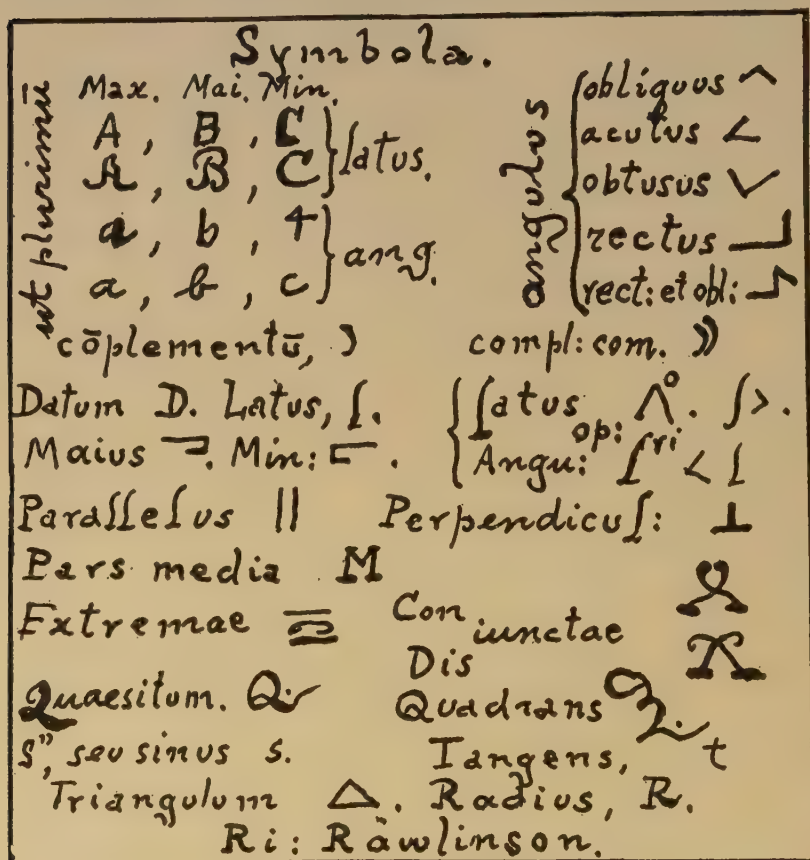 Symbola.
ut plurimū
Max. Mai. Min.
A, B, C
A, B, C } latus.
a, b, 4
a, b, c } ang.
angulos
obliquus ^
acutus <
obtusus ∨
rectus ┘
rect: et obl:
cōplementū, )
compl: com. ))
Datum D. Latus, ʃ.
Maius ⊐. Min: ⊏.
Latus op: Λᵒ. ʃ>.
Angu: ʃʳⁱ < ʃ
Parallelus || Perpendicul: ⊥
Pars media M
Extremae
Con
Dis
iunctae
Quaesitum. Q.
Quadrans Q.
s", seu sinus s.
Tangens, t
Triangulum △. Radius, R.
Ri: Rawlinson.